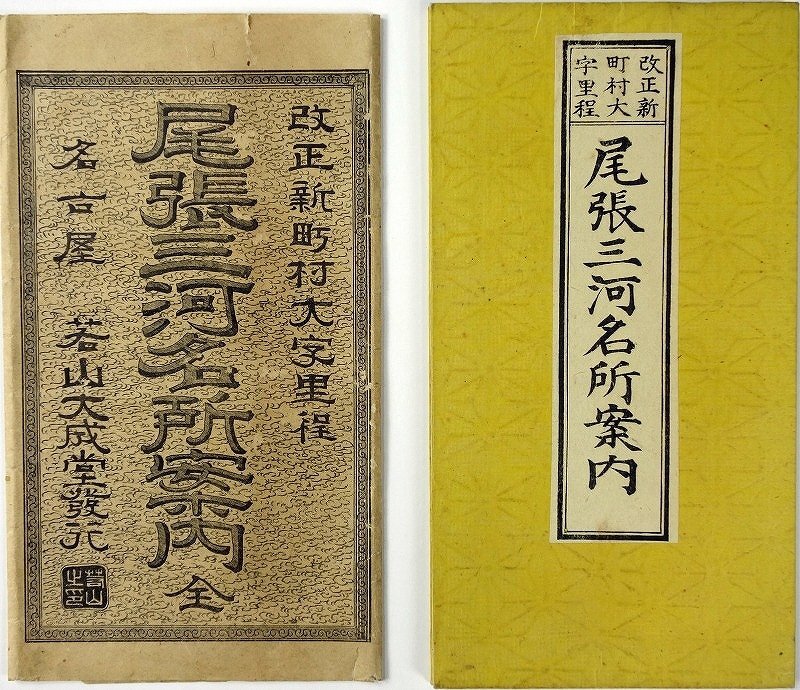 改正新町村大字里程
尾張三河名所案内 全
名古屋 若山大成堂發行
若山之印
改正新
町村大
字里程
尾張三河名所案内